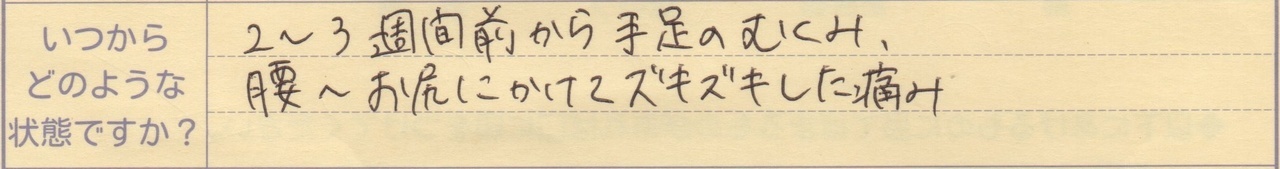 いつから
どのような
状態ですか？
2～3週間前から手足のむくみ、
腰～お尻にかけてズキズキした痛み